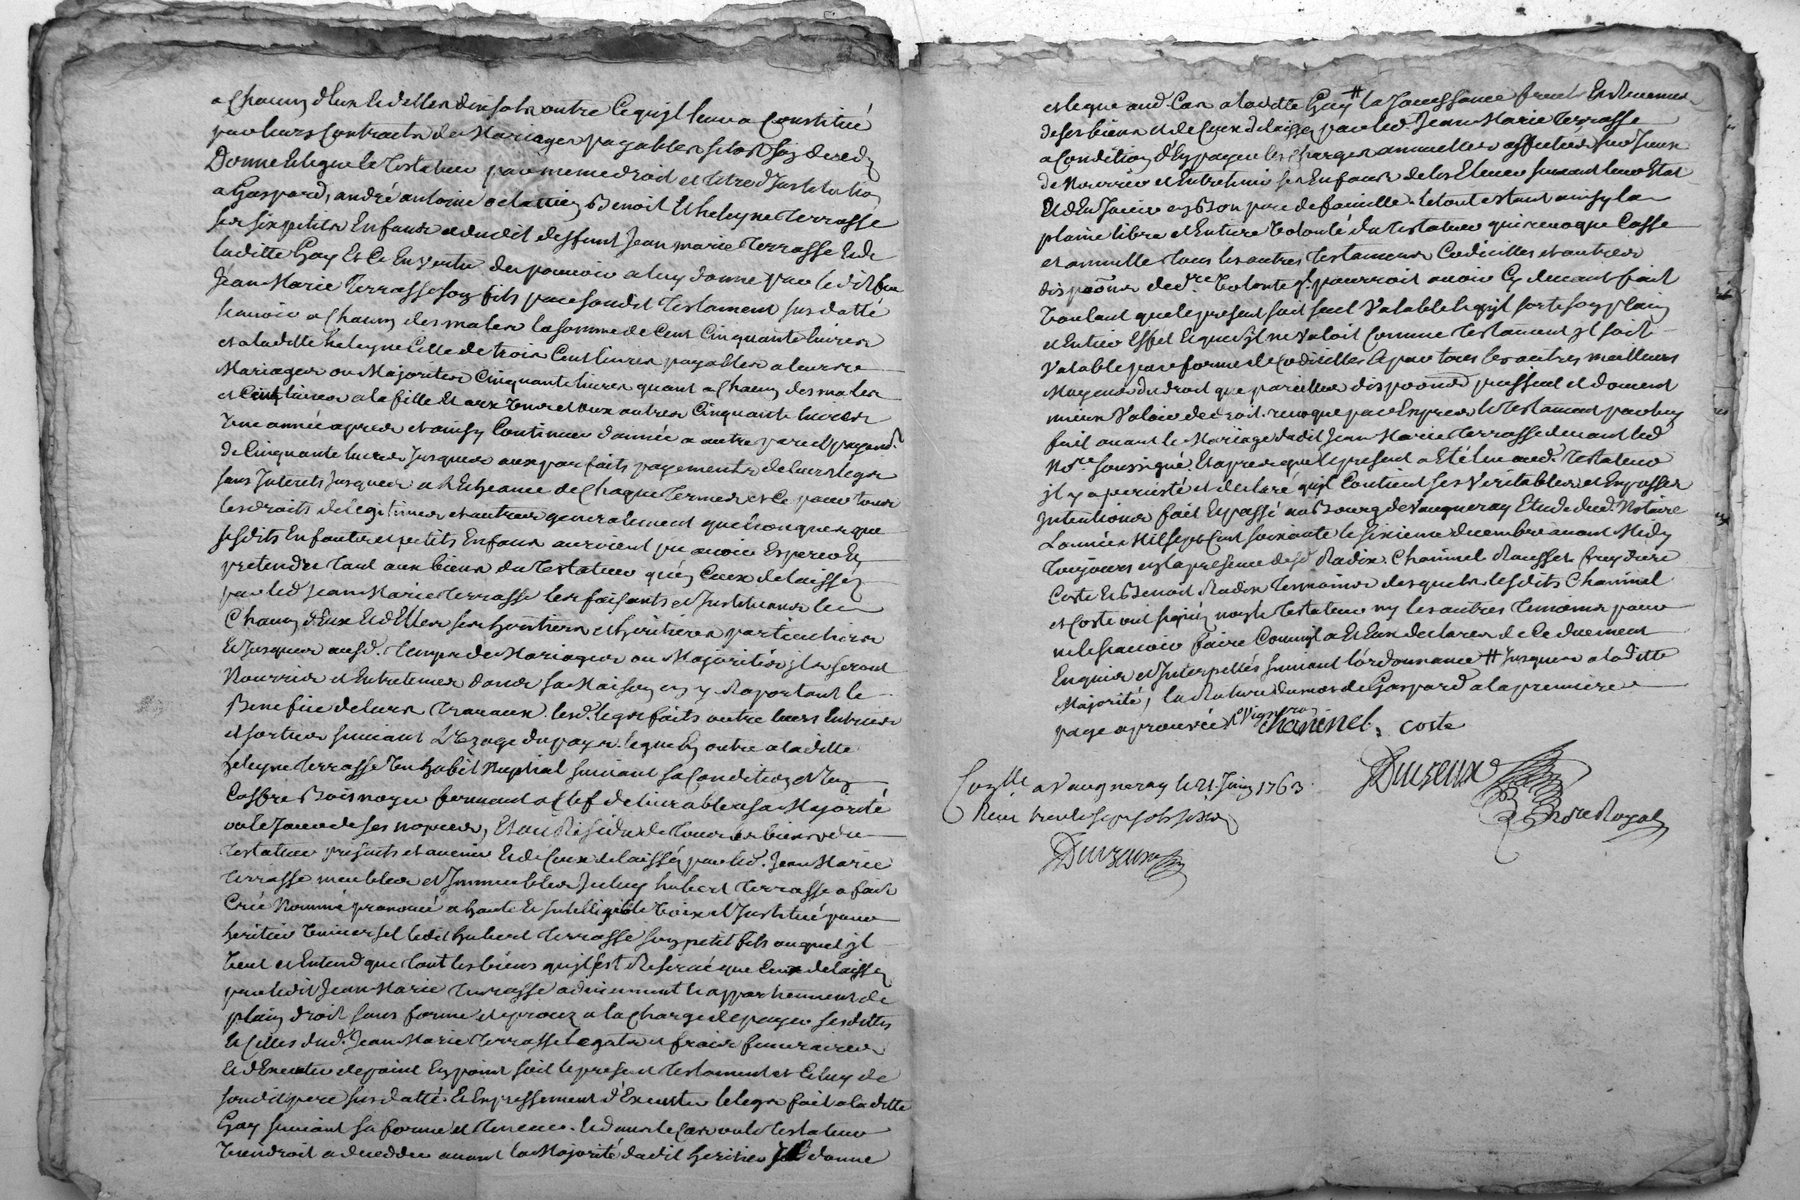 a chacun d'eux et d'elles dix sols outre ce qu'il leur a constitué
par leurs contracts de Mariages payables sitot son deced
Donne et legue le testateur par meme droit et titre d'Institution
a Gaspard, andré antoine Benoit et heleyne Terrasse
ses six petits Enfants et dudit deffunt Jean marie Terrasse et de
laditte Gay Et Ce En vertu du pouvoir a luy donné par ledit feu
Jean Marie Terrasse son fils par son dit testament sus datté
scavoir a chacun des males la somme de Cent Cinquante livres
et a laditte heleyne Celle de trois Cent livres payables a leurs
Mariages ou Majorités Cinquante livres quant a chacun des males
et Cent livres a la fille Et aux uns et aux autres Cinquante livres
une année apres et ainsy Continuer d'année a autre pareil payemt
de Cinquante livres Jusques aux parfaits payements de leurs légs
sans Interets Jusques a l'Echeance de chaque termes et Ce pour tous
les droits de légitimes et autres generalement quelconques que
sesdits Enfants et petits Enfans auroient pu avoir Esperer Et
pretendre tant aux biens du testateur qu'en Ceux delaissés
par led Jean Marie Terrasse les faisants et Instituants
Chacun d'Eux Et d'Elles ses heritiers et heritieres particuliers
Et Jusques ausd. temps de Mariages ou Majorités ils seront
Nourris et Entretenus dans sa Maison en y Raportant le
Benefice de leurs travaux. lesd. legs faits outre leurs Entrées
et sorties suivant L'Uzage du pays. legue En outre a laditte
heleyne Terrasse un habit Nuptial suivant sa Condition et un
Coffre Bois noyer fermant a Clef delivrables a sa Majorité
ou le Jour de ses nopces, Et au Residu de tous les biens du
testateur présents et avenir Et de Ceux delaissés par led. Jean Marie
Terrasse meubles et Immeubles Iceluy hubert Terrasse a fait
Créé Nommé prononcé a haute Et Intelligible voix et Institué pour
heritier universel ledit hubert Terrasse son petit fils auquel il
veut et Entend que tant les biens qu'il s'est Reservé que Ceux delaissés
par ledit Jean Marie Terrasse adviennent et appartiennent de
plain droit sans forme et a la charge de payer ses dettes
et Celles dud. Jean Marie Terrasse legats et fraix funeraires
Et d'Executer de point En point soit le present testament et Celuy de
son dit pere sus datté. Et Expressement d'Executer le legs fait a laditte
Gay suivant sa forme et teneur. Et dans le Cas ou le testateur
viendroit a deceder avant la Majorité dudit heritier Il donne
et legue aud. Cas a laditte Gay # la Jouissance fruits Et Revenus
de ses biens et de Ceux delaissés par led. Jean Marie Terrasse
a Condition d'En payer les charges annuelles affectées sur Iceux
de Nourrir et Entretenir ses Enfans de les Elever suivant leur Etat
Et d'En Jouir en Bon pere de famille. le tout estant ainsy la
plaine libre et Entiere volonté du testateur qui revoque Casse
et annulle tous les autres testaments Codicilles et autres
dispoons de dre volonté qu'il pourroit avoir Cy devant fait
voulant que le present soit seul valable et qu'il sorte son plain
et Entier Effet et que s'il ne valoit Comme testament il soit
valable par forme de Codicilles Et par tous les autres meilleurs
Moyens du droit que pareilles dispoons puissent et doivent
mieux valoir de droit. revoque par Exprès le testament par luy
fait avant le Mariage dudit Jean Marie Terrasse devant led
Nore soussigné. Et apres que le present a Eté lu aud. testateur
il y a persisté et declaré qu'il Contient ses veritables et Expresses
Intentions fait Et passé au Bourg de Vaugneray Etude dud. Notaire
L'année Mil sept Cent soixante le sixieme decembre avant Midy
toujours en la presence desd. Radix Chaninel Rousset
Coste et Benoit Radix temoins desquels lesdits Chaninel
et Coste ont signé, non le testateur ny les autres temoins pour
ne le scavoir faire Comm'il a Et Eux declarés de Ce duement
Enquis et Interpellés suivant l'ordonnance # Jusques a laditte
Majorité, la Rature du mot de Gaspard a la premiere
page aprouvée Chaninel. coste
Con.lle a Vaugneray le 21. Juin 1763
Reçu